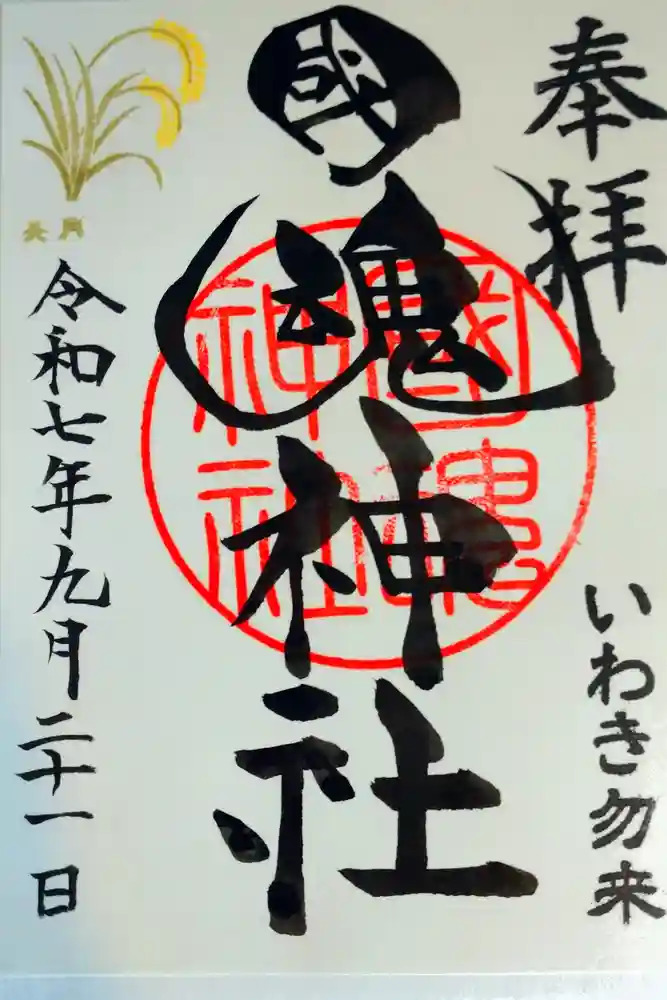 奉拝
いわき勿来
國魂神社
國魂
神社
令和七年九月二十一日
長月